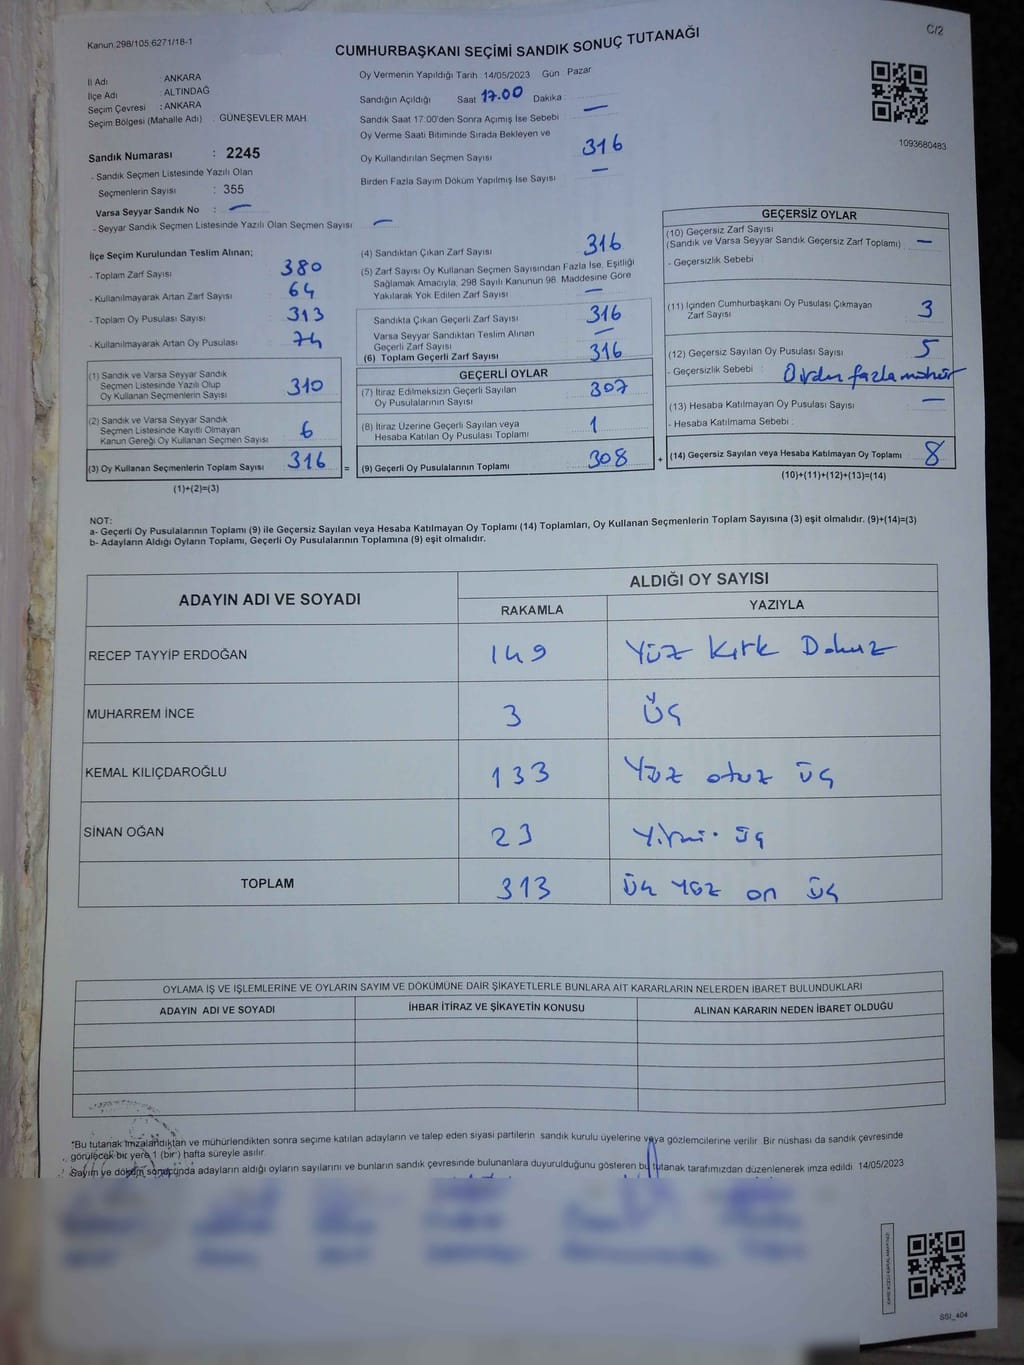 Kanun.298/105,6271/18-1
C/2
CUMHURBAŞKANI SEÇİMİ SANDIK SONUÇ TUTANAĞI
İl Adı : ANKARA
İlçe Adı : ALTINDAĞ
Seçim Çevresi : ANKARA
Seçim Bölgesi (Mahalle Adı) : GÜNEŞEVLER MAH
Sandık Numarası : 2245
- Sandık Seçmen Listesinde Yazılı Olan
Seçmenlerin Sayısı : 355
Varsa Seyyar Sandık No : —
- Seyyar Sandık Seçmen Listesinde Yazılı Olan Seçmen Sayısı —
Oy Vermenin Yapıldığı Tarih 14/05/2023 Gün : Pazar
Sandığın Açıldığı Saat 17.00 Dakika :
Sandık Saat 17:00'den Sonra Açımış İse Sebebi —
Oy Verme Saati Bitiminde Sırada Bekleyen ve
Oy Kullandırılan Seçmen Sayısı 316
Birden Fazla Sayım Döküm Yapılmış İse Sayısı —
1093680483
İlçe Seçim Kurulundan Teslim Alınan;
- Toplam Zarf Sayısı 380
- Kullanılmayarak Artan Zarf Sayısı 64
- Toplam Oy Pusulası Sayısı 313
- Kullanılmayarak Artan Oy Pusulası 74
(1) Sandık ve Varsa Seyyar Sandık
Seçmen Listesinde Yazılı Olup
Oy Kullanan Seçmenlerin Sayısı 310
(2) Sandık ve Varsa Seyyar Sandık
Seçmen Listesinde Kayıtlı Olmayan
Kanun Gereği Oy Kullanan Seçmen Sayısı 6
(3) Oy Kullanan Seçmenlerin Toplam Sayısı 316 =
(1)+(2)=(3)
(4) Sandıktan Çıkan Zarf Sayısı 316
(5) Zarf Sayısı Oy Kullanan Seçmen Sayısından Fazla İse, Eşitliği
Sağlamak Amacıyla, 298 Sayılı Kanunun 98. Maddesine Göre
Yakılarak Yok Edilen Zarf Sayısı —
Sandıkta Çıkan Geçerli Zarf Sayısı 316
Varsa Seyyar Sandıktan Teslim Alınan
Geçerli Zarf Sayısı —
(6) Toplam Geçerli Zarf Sayısı 316
GEÇERLİ OYLAR
(7) İtiraz Edilmeksizin Geçerli Sayılan
Oy Pusulalarının Sayısı 307
(8) İtiraz Üzerine Geçerli Sayılan veya
Hesaba Katılan Oy Pusulası Toplamı 1
(9) Geçerli Oy Pusulalarının Toplamı 308 +
GEÇERSİZ OYLAR
(10) Geçersiz Zarf Sayısı
(Sandık ve Varsa Seyyar Sandık Geçersiz Zarf Toplamı) —
- Geçersizlik Sebebi
(11) İçinden Cumhurbaşkanı Oy Pusulası Çıkmayan
Zarf Sayısı 3
(12) Geçersiz Sayılan Oy Pusulası Sayısı 5
- Geçersizlik Sebebi : fazla mühür
(13) Hesaba Katılmayan Oy Pusulası Sayısı —
- Hesaba Katılmama Sebebi :
(14) Geçersiz Sayılan veya Hesaba Katılmayan Oy Toplamı 8
(10)+(11)+(12)+(13)=(14)
NOT:
a- Geçerli Oy Pusulalarının Toplamı (9) ile Geçersiz Sayılan veya Hesaba Katılmayan Oy Toplamı (14) Toplamları, Oy Kullanan Seçmenlerin Toplam Sayısına (3) eşit olmalıdır. (9)+(14)=(3)
b- Adayların Aldığı Oyların Toplamı, Geçerli Oy Pusulalarının Toplamına (9) eşit olmalıdır.
ADAYIN ADI VE SOYADI
ALDIĞI OY SAYISI
RAKAMLA YAZIYLA
RECEP TAYYİP ERDOĞAN 149 Yüz Kırk Dokuz
MUHARREM İNCE 3 Üç
KEMAL KILIÇDAROĞLU 133 Yüz otuz üç
SİNAN OĞAN 23 Yirmi üç
TOPLAM 313 üç yüz on üç
OYLAMA İŞ VE İŞLEMLERİNE VE OYLARIN SAYIM VE DÖKÜMÜNE DAİR ŞİKAYETLERLE BUNLARA AİT KARARLARIN NELERDEN İBARET BULUNDUKLARI
ADAYIN ADI VE SOYADI İHBAR İTİRAZ VE ŞİKAYETİN KONUSU ALINAN KARARIN NEDEN İBARET OLDUĞU
*Bu tutanak imzalandıktan ve mühürlendikten sonra seçime katılan adayların ve talep eden siyasi partilerin sandık kurulu üyelerine veya gözlemcilerine verilir. Bir nüshası da sandık çevresinde
görülecek bir yere 1 (bir ) hafta süreyle asılır.
Sayım ve döküm sonucunda adayların aldığı oyların sayılarını ve bunların sandık çevresinde bulunanlara duyurulduğunu gösteren bu tutanak tarafımızdan düzenlenerek imza edildi 14/05/2023
SSI_404